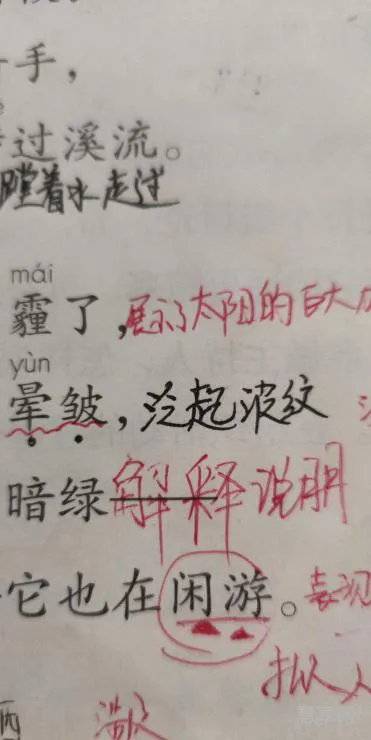 手，
过溪流。
着水走过
mái
霾了，展示了太阳的
yùn
晕皱，泛起波纹
暗绿 解释说明
它也在闲游。表现
拟人